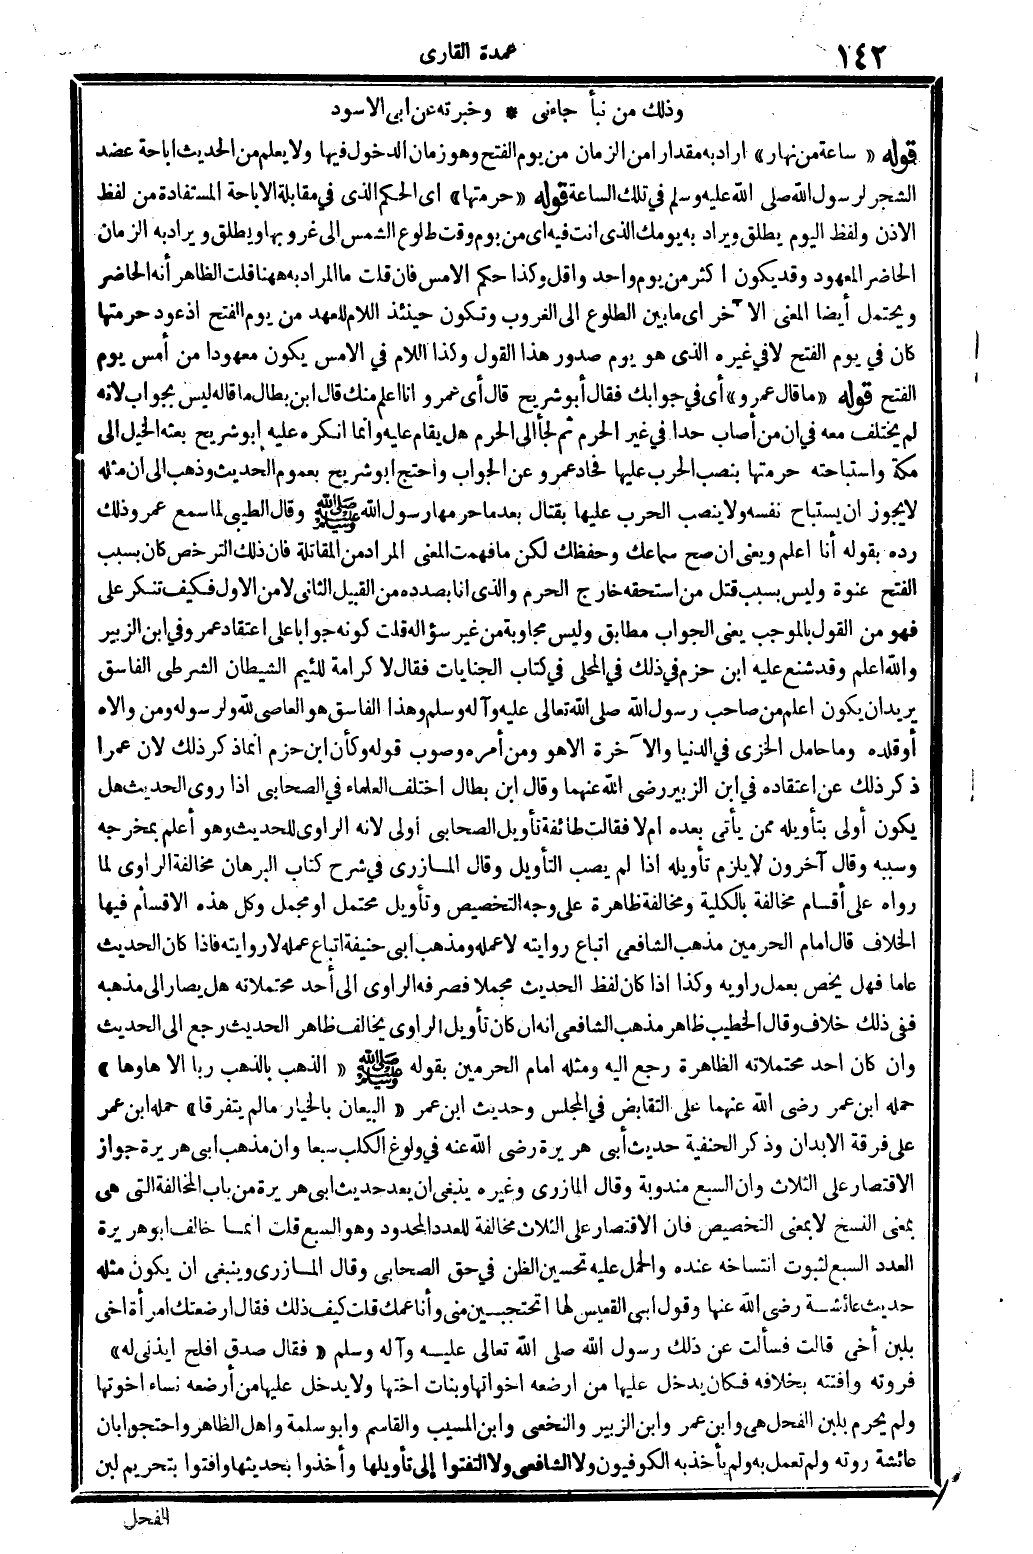 ١٤٢
عمدة القارى
وذلك من نبأ جاءنى * وخبرته عن ابى الاسود
قوله « ساعة من نهار» اراد به مقدارا من الزمان من يوم الفتح وهو زمان الدخول فيها ولا يعلم من الحديث اباحة عضد
الشجر لرسول الله صلى الله عليه وسلم في تلك الساعة قوله « حرمتها» اى الحكم الذى في مقابلة الاباحة المستفادة من لفظ
الاذن ولفظ اليوم يطلق ويراد به يومك الذى انت فيه اى من يوم وقت طلوع الشمس الى غروبها ويطلق ويراد به الزمان
الحاضر المعهود وقد يكون اكثر من يوم واحد واقل وكذا حكم الامس فان قلت ما المراد به ههنا قلت الظاهر أنه الحاضر
ويحتمل أيضا المعنى الآخر اى ما بين الطلوع الى الغروب وتكون حينئذ اللام للعهد من يوم الفتح اذ عود حرمتها
كان في يوم الفتح لا في غيره الذى هو يوم صدور هذا القول وكذا اللام في الامس يكون معهودا من أمس يوم
الفتح قوله « ما قال عمرو» أى في جوابك فقال أبو شريح قال أى عمرو انا اعلم منك قال ابن بطال ما قاله ليس بجواب لانه
لم يختلف معه في ان من أصاب حدا في غير الحرم ثم لجأ الى الحرم هل يقام عليه وانما انكره عليه ابو شريح بعثه الخيل الى
مكة واستباحته حرمتها بنصب الحرب عليها فحاد عمرو عن الجواب واحتج ابو شريح بعموم الحديث وذهب الى ان مثله
لا يجوز ان يستباح نفسه ولا ينصب الحرب عليها بقتال بعد ما حرمها رسول الله ﷺ وقال الطيبى لما سمع عمرو ذلك
رده بقوله أنا اعلم ويعنى ان صح سماعك وحفظك لكن ما فهمت المعنى المراد من المقاتلة فان ذلك الترخص كان بسبب
الفتح عنوة وليس بسبب قتل من استحقه خارج الحرم والذى انا بصدده من القبيل الثانى لا من الاول فكيف تنكر على
فهو من القول بالموجب يعنى الجواب مطابق وليس مجاوبة من غير سؤاله قلت كونه جوابا على اعتقاد عمرو في ابن الزبير
والله اعلم وقد شنع عليه ابن حزم في ذلك في المحلى في كتاب الجنايات فقال لا كرامة للئيم الشيطان الشرطى الفاسق
يريد ان يكون اعلم من صاحب رسول الله صلى الله تعالى عليه وآله وسلم وهذا الفاسق هو العاصى لله ولرسوله ومن والاه
أو قلده وما حامل الخزى في الدنيا والآخرة الا هو ومن أمره وصوب قوله وكأن ابن حزم انما ذكر ذلك لان عمرا
ذكر ذلك عن اعتقاده في ابن الزبير رضى الله عنهما وقال ابن بطال اختلف العلماء في الصحابى اذا روى الحديث هل
يكون أولى بتأويله ممن يأتى بعده ام لا فقالت طائفة تأويل الصحابى أولى لانه الراوى للحديث وهو أعلم بمخرجه
وسببه وقال آخرون لا يلزم تأويله اذا لم يصب التأويل وقال المازرى في شرح كتاب البرهان مخالفة الراوى لما
رواه على أقسام مخالفة بالكلية ومخالفة ظاهرة على وجه التخصيص وتأويل محتمل او مجمل وكل هذه الاقسام فيها
الخلاف قال امام الحرمين مذهب الشافعى اتباع روايته لا عمله ومذهب ابى حنيفة اتباع عمله لا روايته فاذا كان الحديث
عاما فهل يخص بعمل راويه وكذا اذا كان لفظ الحديث مجملا فصرفه الراوى الى أحد محتملاته هل يصار الى مذهبه
ففى ذلك خلاف وقال الخطيب ظاهر مذهب الشافعى انه ان كان تأويل الراوى يخالف ظاهر الحديث رجع الى الحديث
وان كان احد محتملاته الظاهرة رجع اليه ومثله امام الحرمين بقوله ﷺ « الذهب بالذهب ربا الا هاوها »
حمله ابن عمر رضى الله عنهما على التقابض في المجلس وحديث ابن عمر « البيعان بالخيار ما لم يتفرقا» حمله ابن عمر
على فرقة الابدان وذكر الحنفية حديث أبى هريرة رضى الله عنه في ولوغ الكلب سبعا وان مذهب ابى هريرة جواز
الاقتصار على الثلاث وان السبع مندوبة وقال المازرى وغيره ينبغى ان يعد حديث ابى هريرة من باب المخالفة التى هى
بمعنى النسخ لا بمعنى التخصيص فان الاقتصار على الثلاث مخالفة للعدد المحدود وهو السبع قلت انما خالف ابو هريرة
العدد السبع لثبوت انتساخه عنده والحمل عليه تحسين الظن في حق الصحابى وقال المازرى وينبغى ان يكون مثله
حديث عائشة رضى الله عنها وقول ابى القعيس لها اتحتجبين منى وأنا عمك قلت كيف ذلك فقال ارضعتك امرأة اخى
بلبن أخى قالت فسألت عن ذلك رسول الله صلى الله تعالى عليه وآله وسلم « فقال صدق افلح ايذنى له»
فروته وافتته بخلافه فكان يدخل عليها من ارضعه اخواتها وبنات اختها ولا يدخل عليها من أرضعه نساء اخوتها
ولم يحرم بلبن الفحل هى وابن عمر وابن الزبير والنخعى وابن المسيب والقاسم وابو سلمة واهل الظاهر واحتجوا بان
عائشة روته ولم تعمل به ولم يأخذ به الكوفيون ولا الشافعى ولا التفتوا إلى تأويلها وأخذوا بحديثها وافتوا بتحريم لبن
الفحل